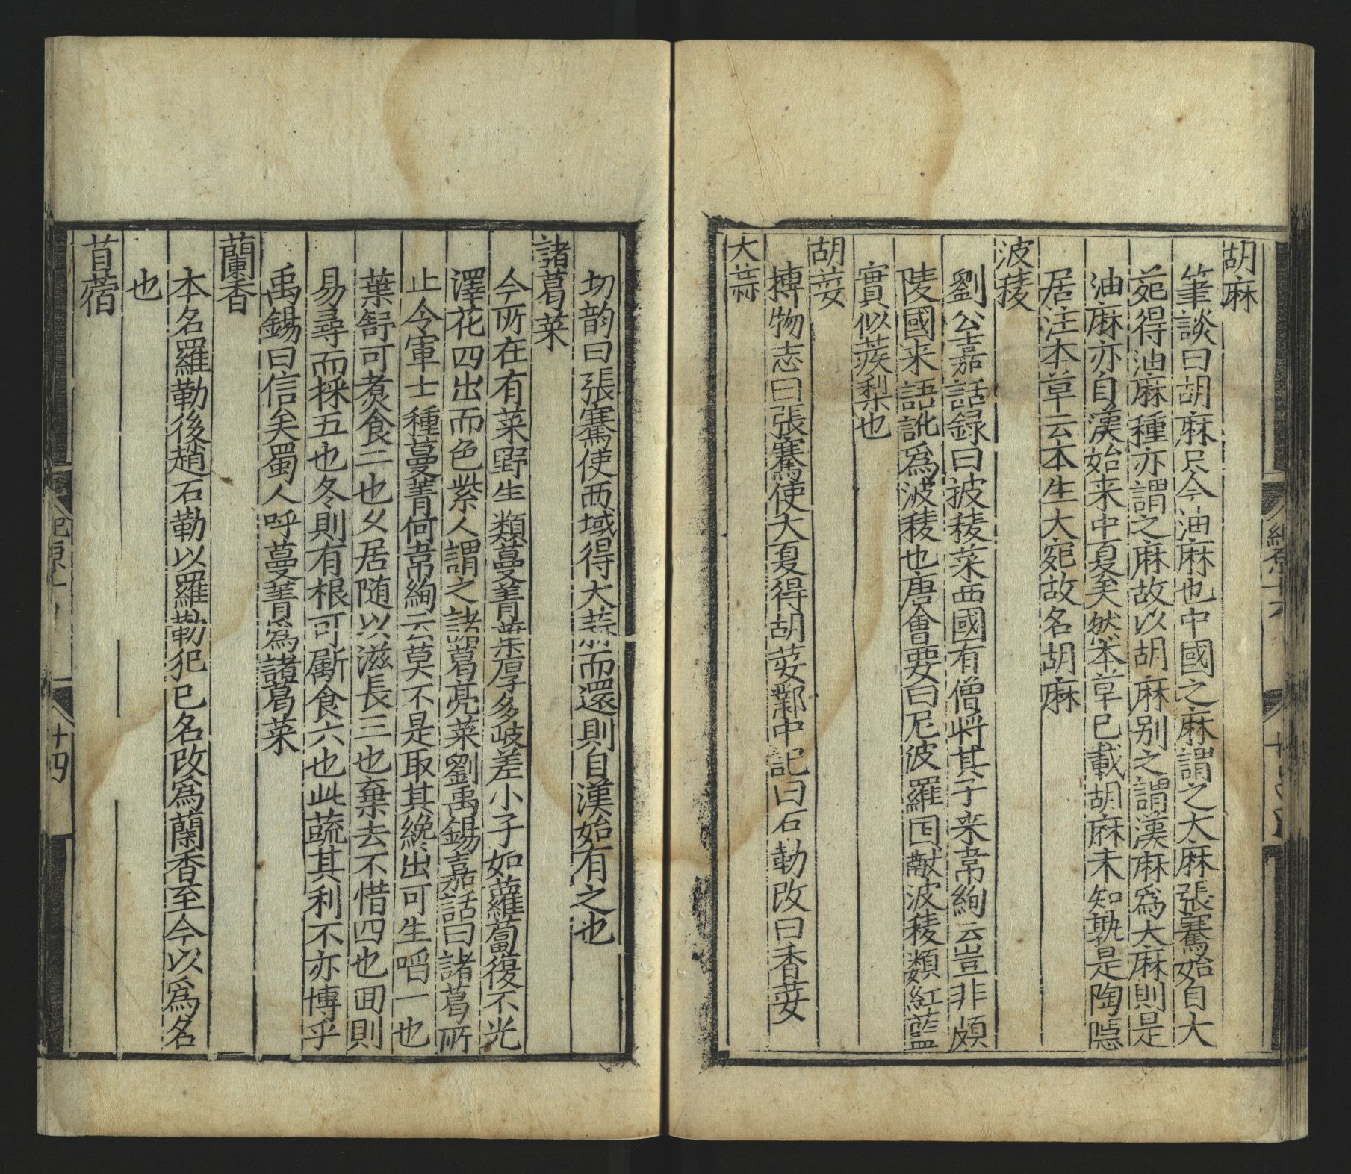 胡麻
筆談曰胡麻只今油麻也中國之麻謂之大麻張騫始自大
菀得油麻種亦謂之麻故以胡麻别之謂漢麻為大麻則是
油麻亦自漢始来中夏矣然本草已載胡麻未知孰是陶隱
居注本草云本生大宛故名胡麻
波稜
劉公嘉話録曰披稜菜西國有僧將其子来韋絢云豈非頗
陵國来語訛為波稜也唐會要曰尼波羅囯献波稜類紅藍
實似蒺梨也
胡荽
博物志曰張騫使大夏得胡荽鄴中記曰石勒改曰香荽
大蒜
切韵曰張騫使西域得大蒜而還則自漢始有之也
諸葛菜
今所在有菜野生類蔓菁葉厚多岐差小子如蘿蔔復不光
澤花四出而色紫人謂之諸葛亮菜劉禹錫嘉話曰諸葛所
止令軍士種蔓菁何韋絢云莫不是取其纔出可生啗一也
葉舒可煑食二也久居随以滋長三也棄去不惜四也囬則
易尋而採五也冬則有根可斸食六也此蔬其利不亦博乎
禹錫曰信矣蜀人呼蔓菁為諸葛菜
蘭香
本名羅勒後趙石勒以羅勒犯已名改為蘭香至今以為名
也
苜蓿
十四